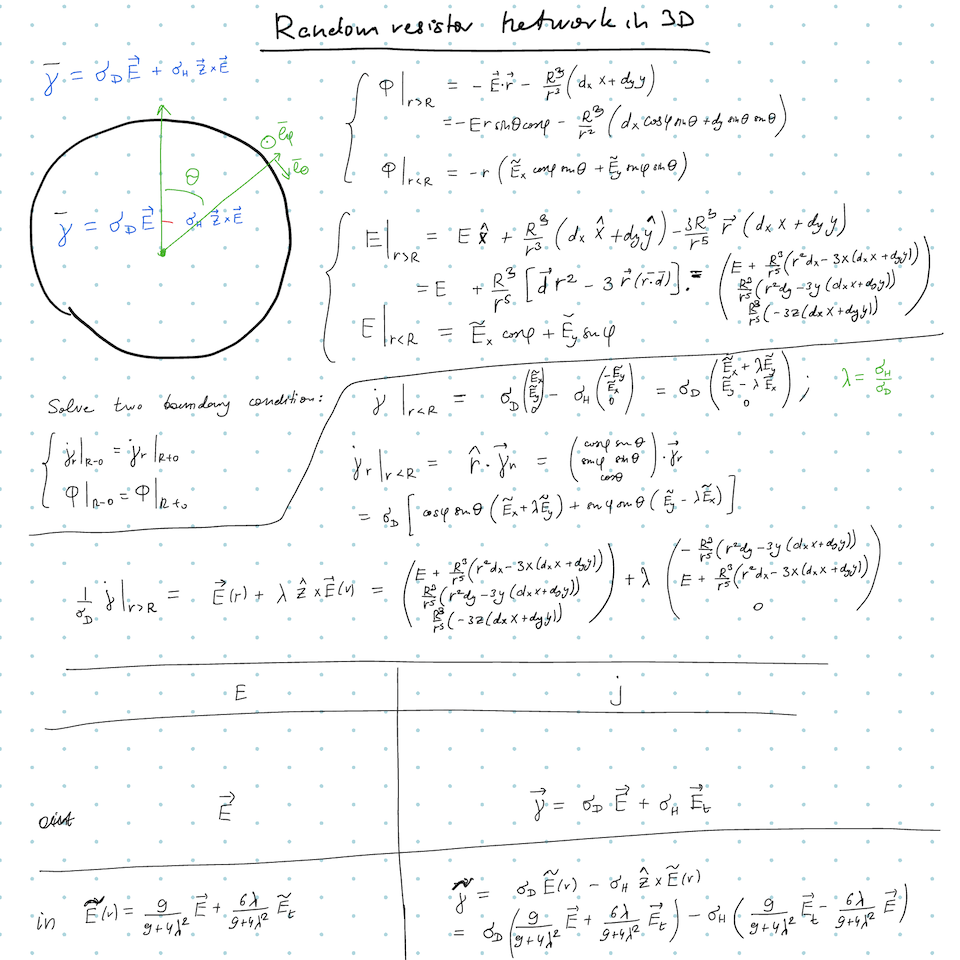 Random resistor network in 3D
j̄ = σ_D E⃗ + σ_H z⃗×E⃗
Φ|_{r>R} = -E⃗·r⃗ - R³/r³ (d_x x + d_y y)
= -E r sinθ cosφ - R³/r² (d_x cosφ sinθ + d_y sinθ sinθ)
Φ|_{r<R} = -r (Ẽ_x cosφ sinθ + Ẽ_y sinφ sinθ)
ē_φ
ē_θ
θ
j̄ = σ_D E⃗ - σ_H z⃗×E⃗
E|_{r>R} = E x̂ + R³/r³ (d_x x̂ + d_y ŷ) - 3R³/r⁵ r⃗ (d_x x + d_y y)
= E + R³/r⁵ [d⃗ r² - 3 r⃗ (r̄·d̄)] = (E + R³/r⁵ (r²d_x - 3x(d_x x + d_y y))
R³/r⁵ (r²d_y - 3y(d_x x + d_y y))
R³/r⁵ (-3z(d_x x + d_y y)))
E|_{r<R} = Ẽ_x cosφ + Ẽ_y sinφ
Solve two boundary condition:
j_r|_{R-0} = j_r|_{R+0}
Φ|_{R-0} = Φ|_{R+0}
j|_{r<R} = σ_D (Ẽ_x Ẽ_y 0) - σ_H (-Ẽ_y Ẽ_x 0) = σ_D (Ẽ_x + λẼ_y Ẽ_y - λẼ_x 0) ; λ = σ_H/σ_D
j_r|_{r<R} = r̂·j⃗_r = (cosφ sinθ sinφ sinθ cosθ)·j⃗_r
= σ_D [cosφ sinθ (Ẽ_x + λẼ_y) + sinφ sinθ (Ẽ_y - λẼ_x)]
1/σ_D j|_{r>R} = E⃗(r) + λ ẑ×E⃗(r) = (E + R³/r⁵ (r²d_x - 3x(d_x x + d_y y)) R³/r⁵ (r²d_y - 3y(d_x x + d_y y)) R³/r⁵ (-3z(d_x x + d_y y))) + λ (- R³/r⁵ (r²d_y - 3y(d_x x + d_y y)) E + R³/r⁵ (r²d_x - 3x(d_x x + d_y y)) 0)
E j
E⃗ j⃗ = σ_D E⃗ + σ_H E⃗_t
in Ẽ(r) = 9/(9+4λ²) E⃗ + 6λ/(9+4λ²) Ẽ_t
j̃ = σ_D Ẽ(r) - σ_H ẑ×Ẽ(r)
= σ_D (9/(9+4λ²) E⃗ + 6λ/(9+4λ²) E⃗_t) - σ_H (9/(9+4λ²) E⃗_t - 6λ/(9+4λ²) E⃗)